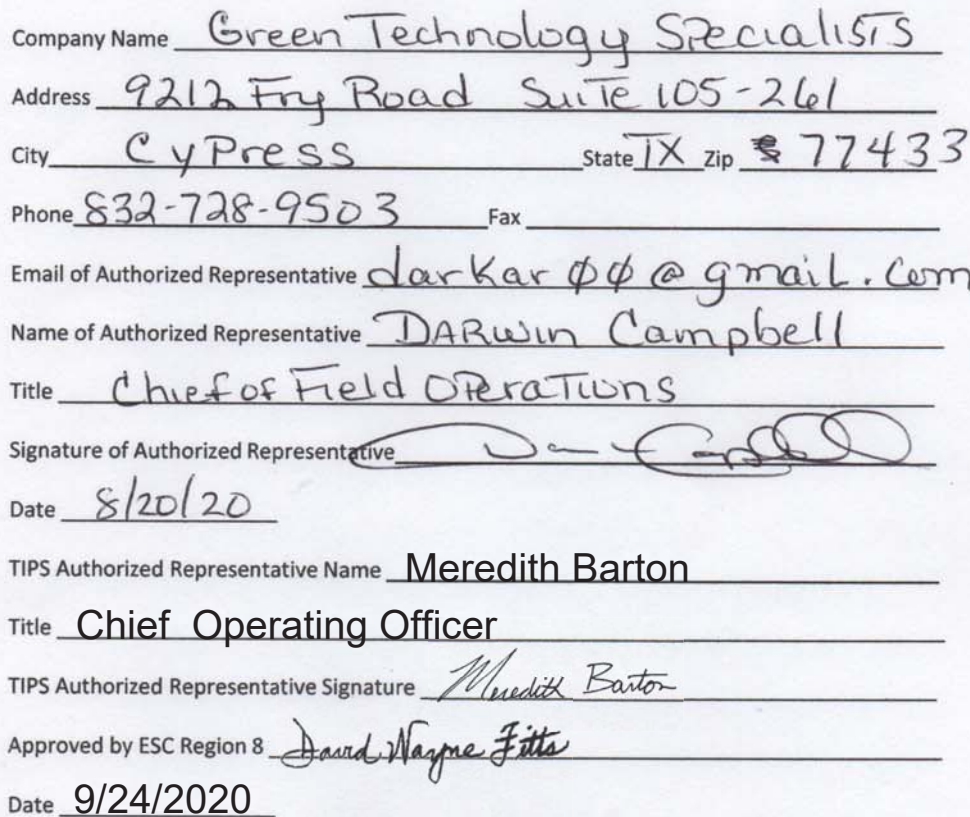 Company Name Green Technology Specialists
Address 9212 Fry Road Suite 105-261
City Cypress State TX Zip 77433
Phone 832-728-9503 Fax
Email of Authorized Representative darkar00@gmail.com
Name of Authorized Representative DARwin Campbell
Title Chief of Field Operations
Signature of Authorized Representative
Date 8/20/20
TIPS Authorized Representative Name Meredith Barton
Title Chief Operating Officer
TIPS Authorized Representative Signature Meredith Barton
Approved by ESC Region 8 David Wayne Fitts
Date 9/24/2020